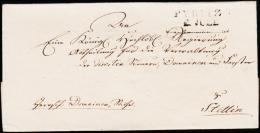 PYRITZ
Den
Eine Königl Hochlöbl Regierung
Abtheilung für die Verwaltung
der directen Steuern, Domainen und Forsten
zu
Herrschl Domainen Sache
Stettin